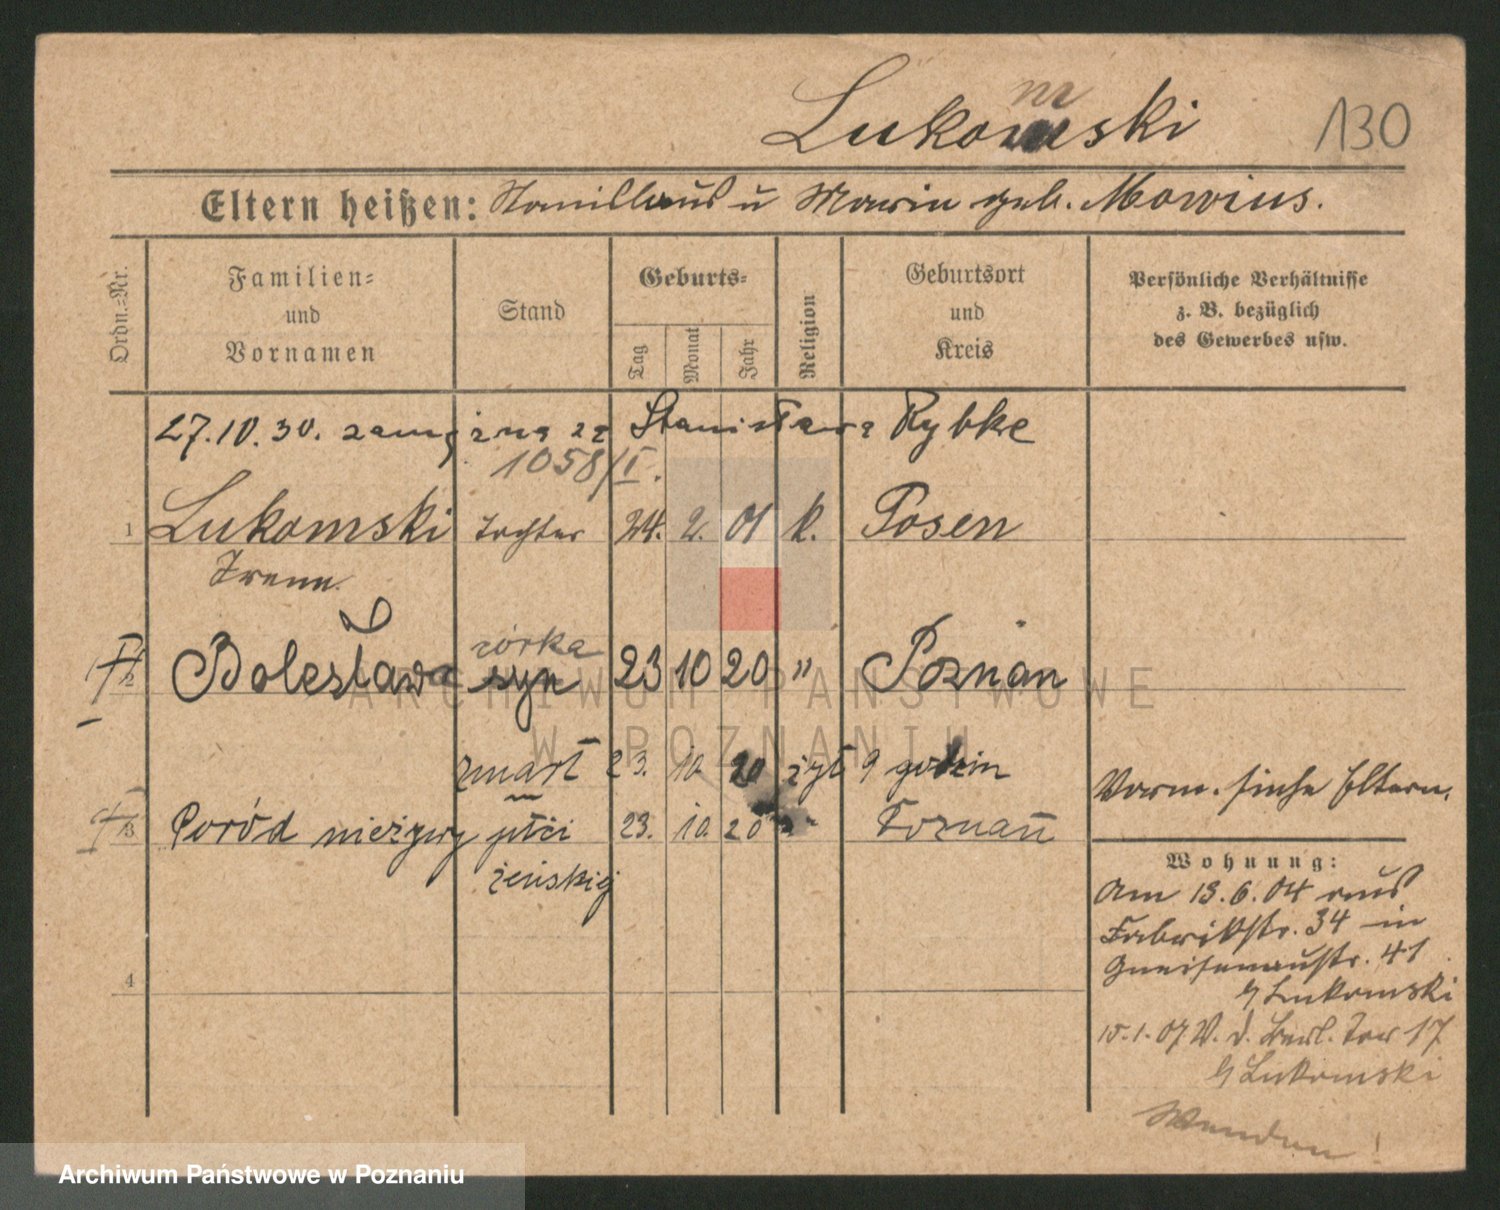 m
Lukomski 130
Eltern heißen: Stanislaus u Maria geb. Mowius.
Ordn.=Nr. Familien= und Vornamen Stand Geburts= Tag Monat Jahr Religion Geburtsort und Kreis Persönliche Verhältnisse z. B. bezüglich des Gewerbes usw.
27.10.30. zamężna za Stanisława Rybke
1058/I.
1 Lukomski Tochter 24. 2. 01 k. Posen
Irena
córka
2 Bolesława syn 23 10 20 " Poznań
zmarł 23. 10. 20 żył 9 godzin
Vorm. siehe Eltern.
3 Poród nieżywy płci 23. 10. 20 " Poznań
żeńskiej
Wohnung:
Am 13.6.04 aus
Fabrikstr. 34 in
Gneisenaustr. 41
Lukomski
4
15.1.07 V. d. Berl. Tor 17
Lukomski
Wenden!
ARCHIWUM PAŃSTWOWE
W POZNANIU
Archiwum Państwowe w Poznaniu